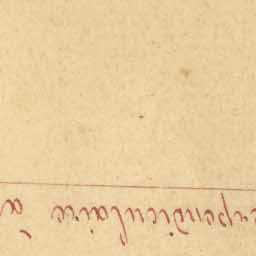 erpendiculaire à